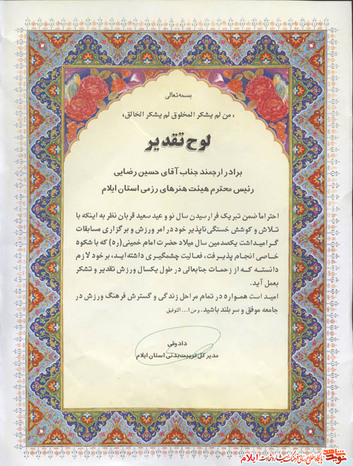 بسمه تعالی
«من لم یشکر المخلوق لم یشکر الخالق»
لوح تقدیر
برادر ارجمند جناب آقای حسین رضایی
رئیس محترم هیئت هنرهای رزمی استان ایلام
احتراما ضمن تبریک فرارسیدن سال نو و عید سعید قربان نظر به اینکه با
تلاش و کوشش خستگی ناپذیر خود در امر ورزش و برگزاری مسابقات
گرامیداشت یکصدمین سال میلاد حضرت امام خمینی (ره) که با شکوه
خاصی انجام پذیرفت، فعالیت چشمگیری داشته اید، بر خود لازم
دانسته که از زحمات جنابعالی در طول یکسال ورزش تقدیر و تشکر
بعمل آید.
امید است همواره در تمام مراحل زندگی و گسترش فرهنگ ورزش در
جامعه موفق و سربلند باشید. و من ا... التوفیق
دادوفی
مدیر کل تربیت بدنی استان ایلام
ایلام